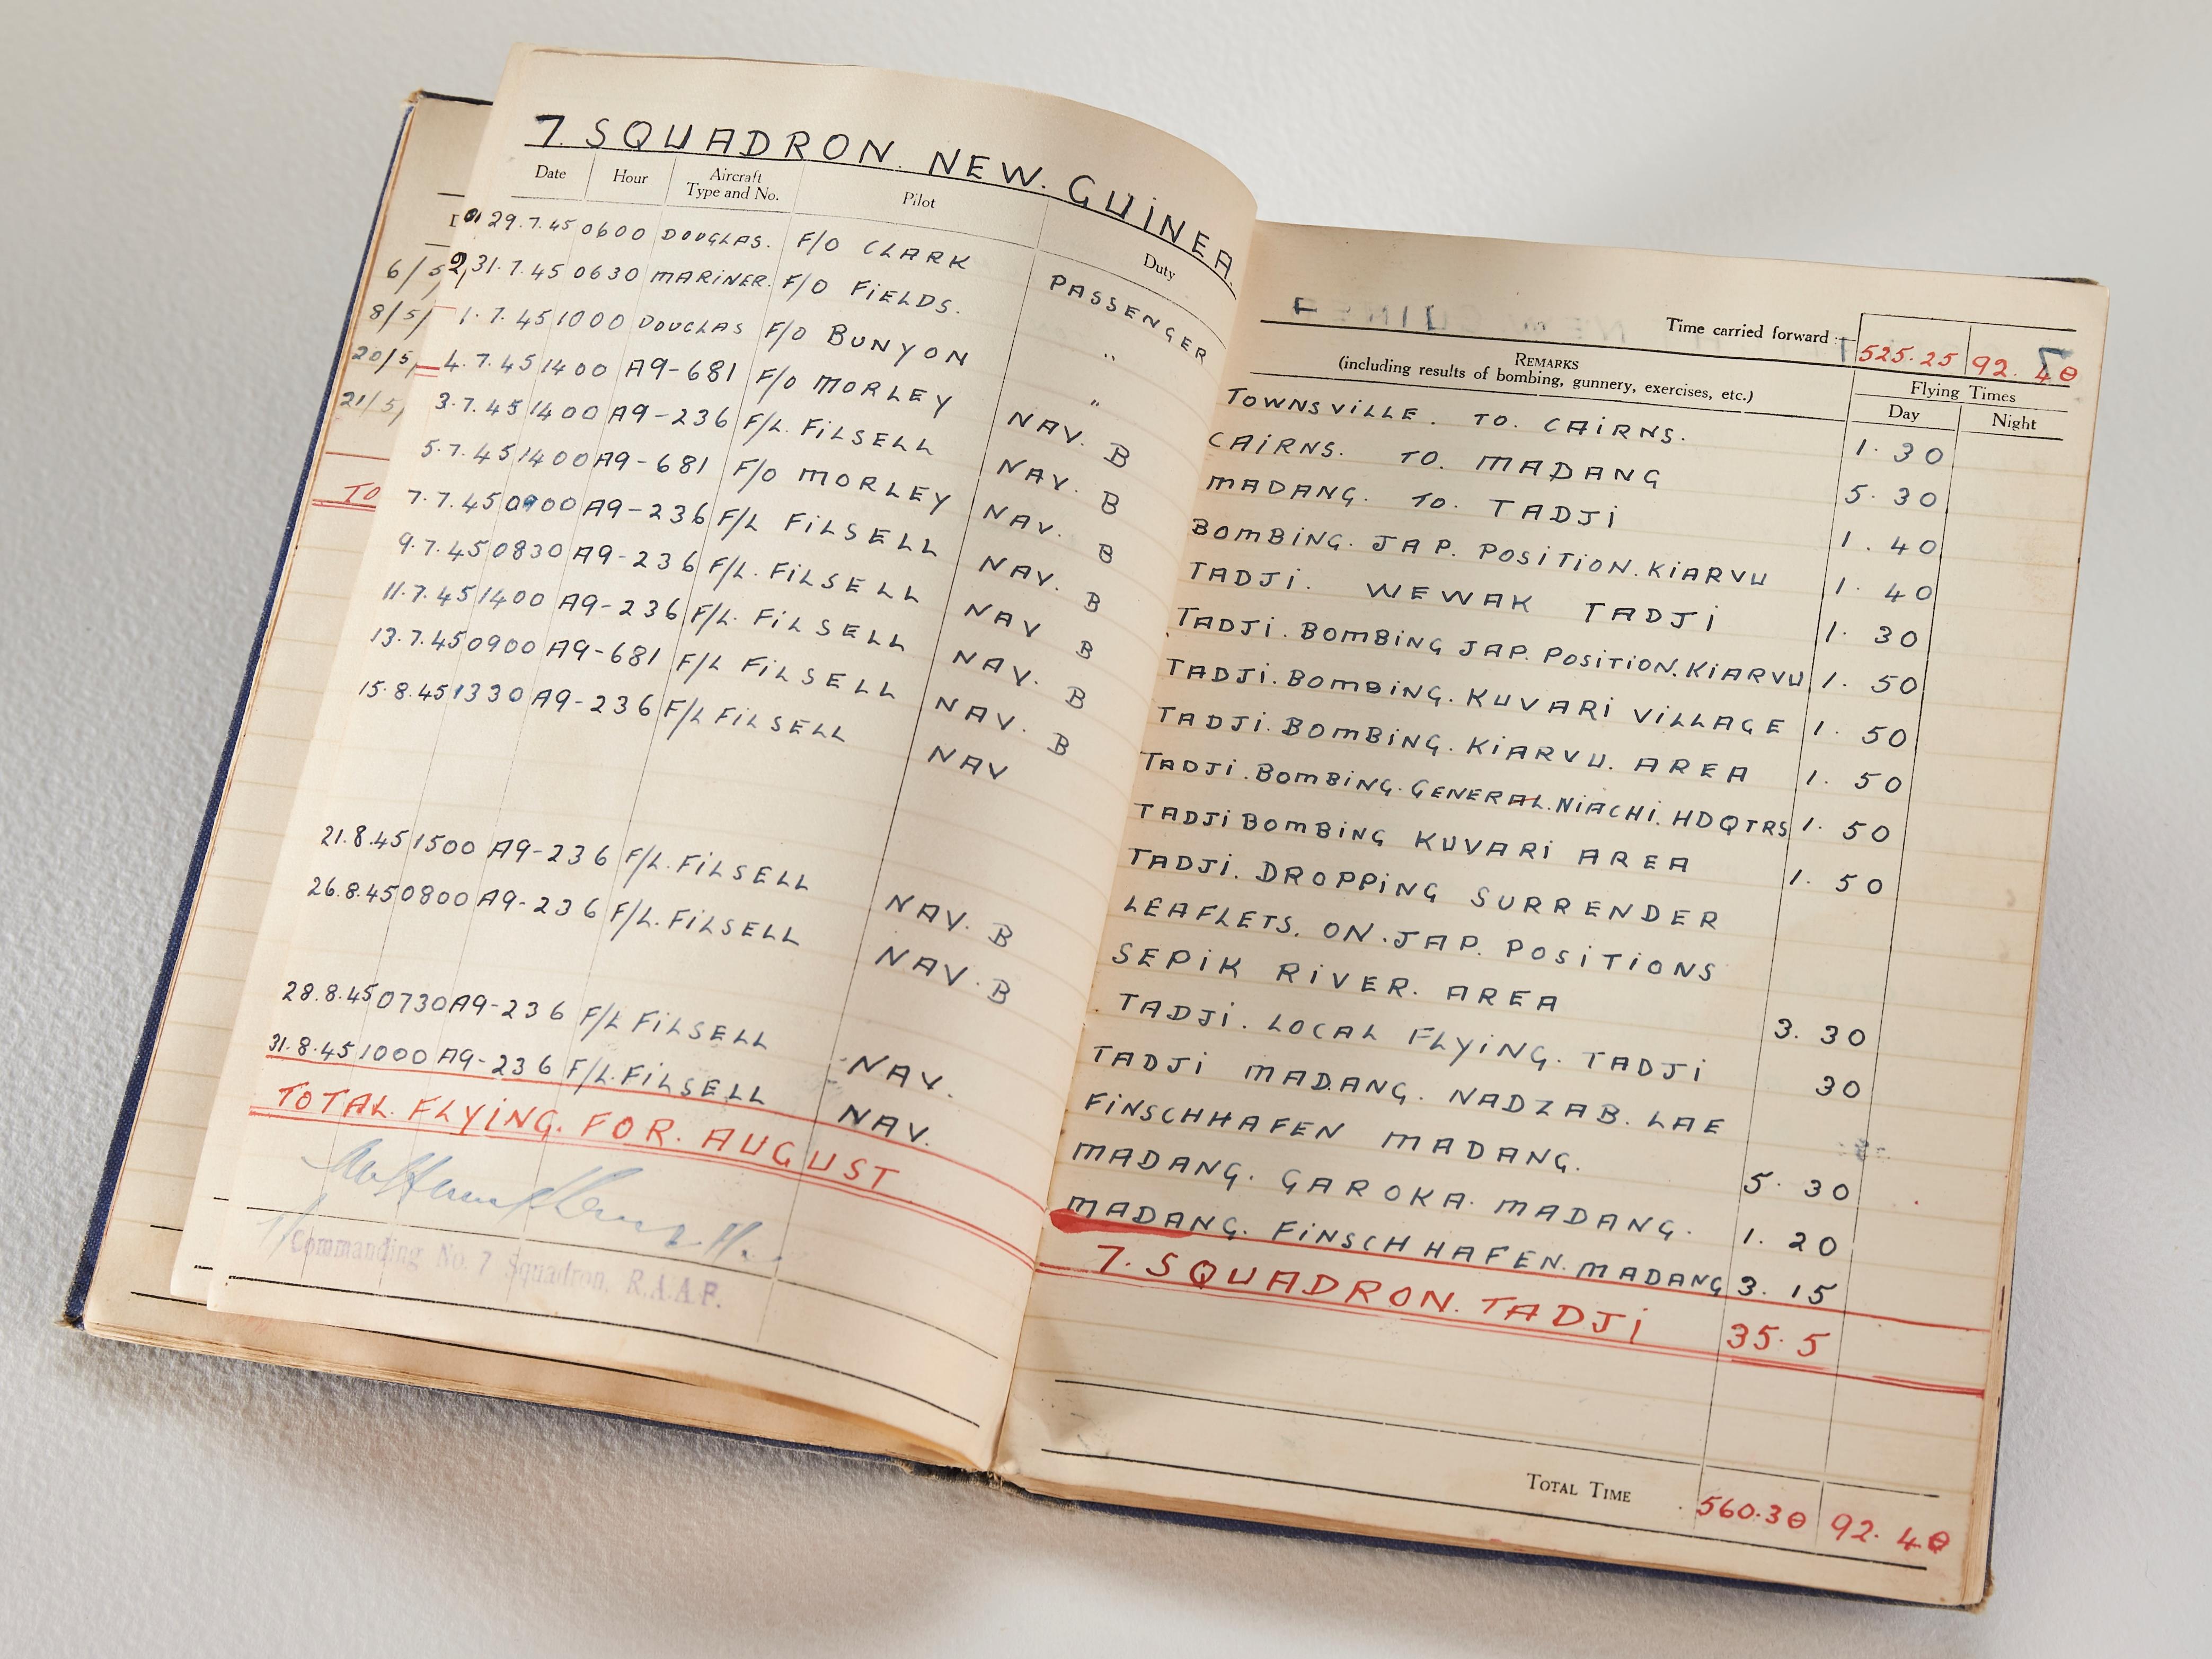 7. SQUADRON. NEW. GUINEA.
Date Hour Aircraft Type and No. Pilot Duty
29.7.45 0600 DOUGLAS. F/O CLARK PASSENGER
31.7.45 0630 MARINER. F/O FIELDS. "
1.7.45 1000 DOUGLAS F/O BUNYON "
4.7.45 1400 A9-681 F/O MORLEY NAV. B
3.7.45 1400 A9-236 F/L. FILSELL NAV. B
5.7.45 1400 A9-681 F/O MORLEY NAV. B
7.7.45 0900 A9-236 F/L FILSELL NAV. B
9.7.45 0830 A9-236 F/L. FILSELL NAV B
11.7.45 1400 A9-236 F/L. FILSELL NAV. B
13.7.45 0900 A9-681 F/L FILSELL NAV. B
15.8.45 1330 A9-236 F/L FILSELL NAV
21.8.45 1500 A9-236 F/L. FILSELL NAV. B
26.8.45 0800 A9-236 F/L. FILSELL NAV. B
28.8.45 0730 A9-236 F/L FILSELL NAV.
31.8.45 1000 A9-236 F/L. FILSELL NAV.
TOTAL. FLYING. FOR. AUGUST
Commanding No. 7 Squadron, R.A.A.F.
6/5
8/5/
20/5,
21/5,
TO
Time carried forward :— 525.25 92.40
REMARKS
(including results of bombing, gunnery, exercises, etc.)
Flying Times
Day Night
TOWNSVILLE. TO. CAIRNS. 1.30
CAIRNS. TO. MADANG 5.30
MADANG. TO. TADJI 1.40
BOMBING. JAP. POSITION. KIARVU 1.40
TADJI. WEWAK TADJI 1.30
TADJI. BOMBING JAP. POSITION. KIARVU 1.50
TADJI. BOMBING. KUVARI VILLAGE 1.50
TADJI. BOMBING. KIARVU. AREA 1.50
TADJI. BOMBING. GENERAL. NIACHI. HDQTRS 1.50
TADJI BOMBING KUVARI AREA 1.50
TADJI. DROPPING SURRENDER
LEAFLETS. ON. JAP. POSITIONS
SEPIK RIVER. AREA 3.30
TADJI. LOCAL FLYING. TADJI 30
TADJI MADANG. NADZAB. LAE
FINSCHHAFEN MADANG. 5.30
MADANG. GAROKA. MADANG. 1.20
MADANG. FINSCHHAFEN. MADANG 3.15
7. SQUADRON. TADJI 35.5
TOTAL TIME 560.30 92.40